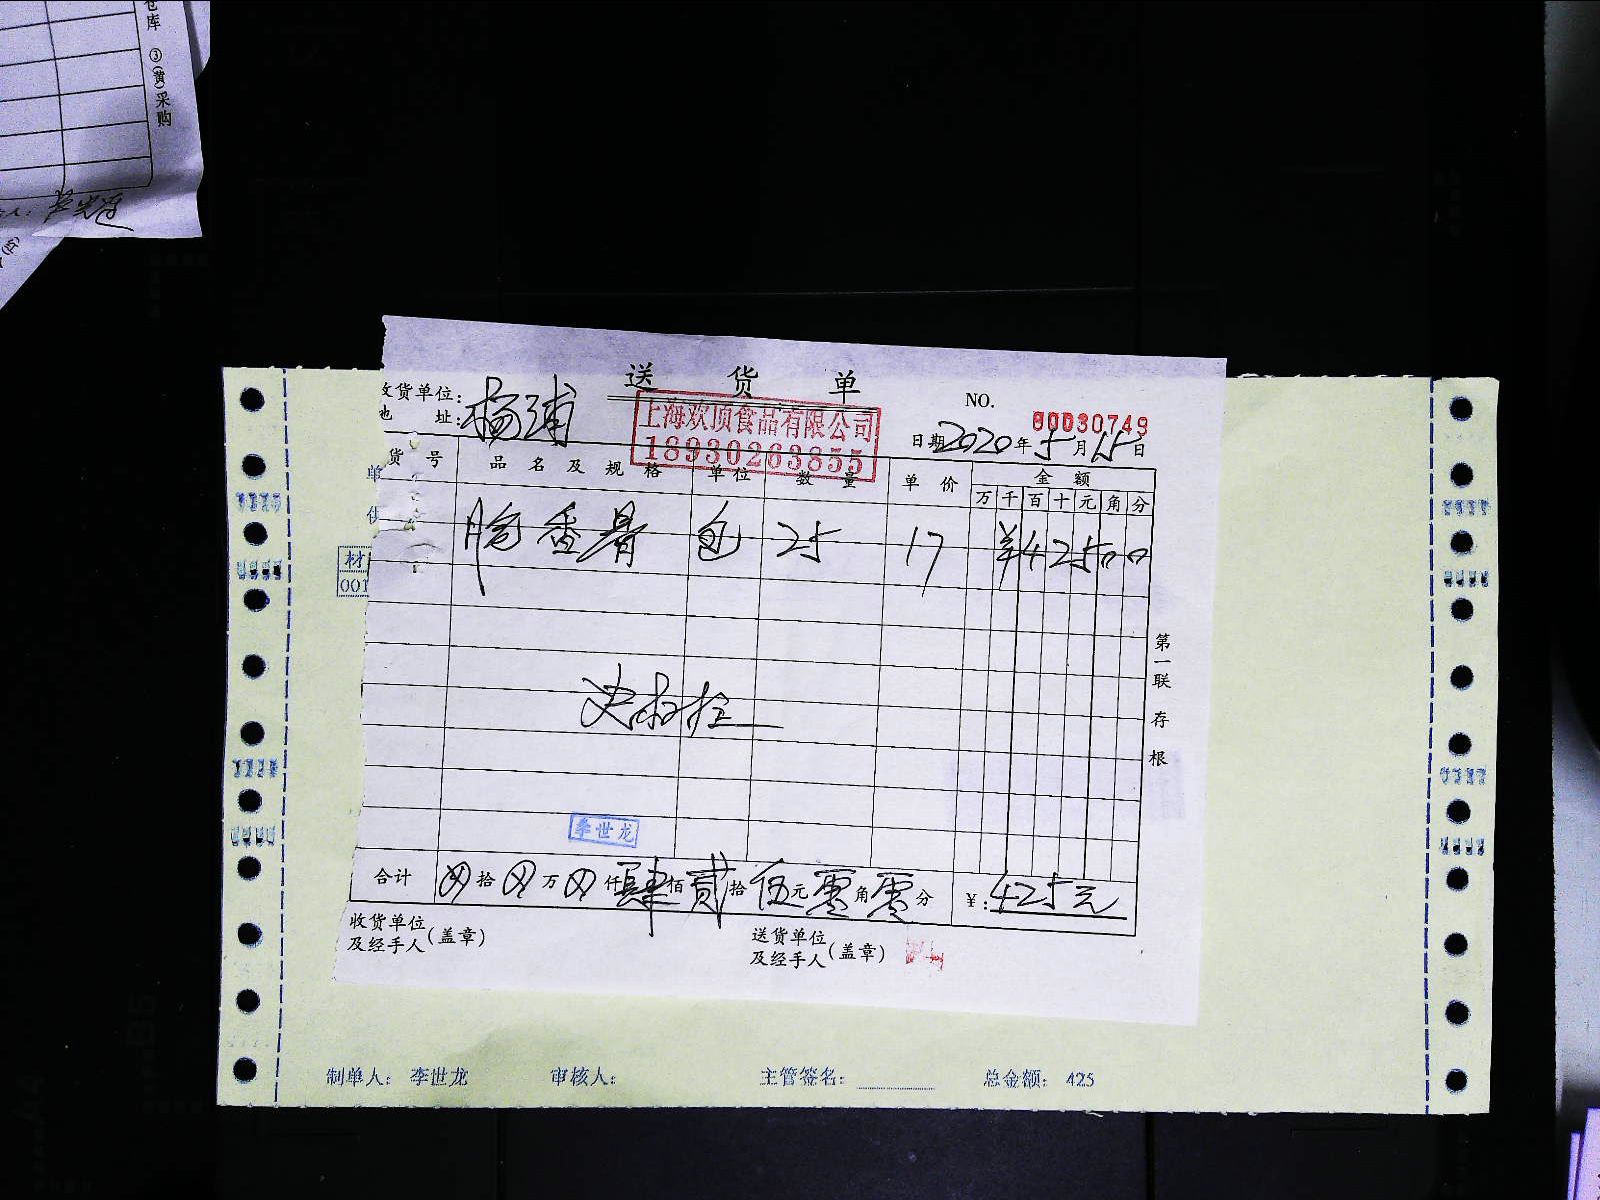 仓库 ③(黄)采购
送 货 单
收货单位:
地 址: 杨浦
上海欢顶食品有限公司
18930263855
NO. 00030749
日期 2020 年 5 月 15 日
货 号 品 名 及 规 格 单位 数 量 单 价 金 额
万 千 百 十 元 角 分
包 25 17 ¥42500
单
材
001
第一联 存根
李世龙
合计 拾 万 仟 肆 佰 贰 拾 伍 元 零 角 零 分 ¥: 425元
收货单位
及经手人 (盖章)
送货单位
及经手人 (盖章)
制单人: 李世龙 审核人: 主管签名: 总金额: 425